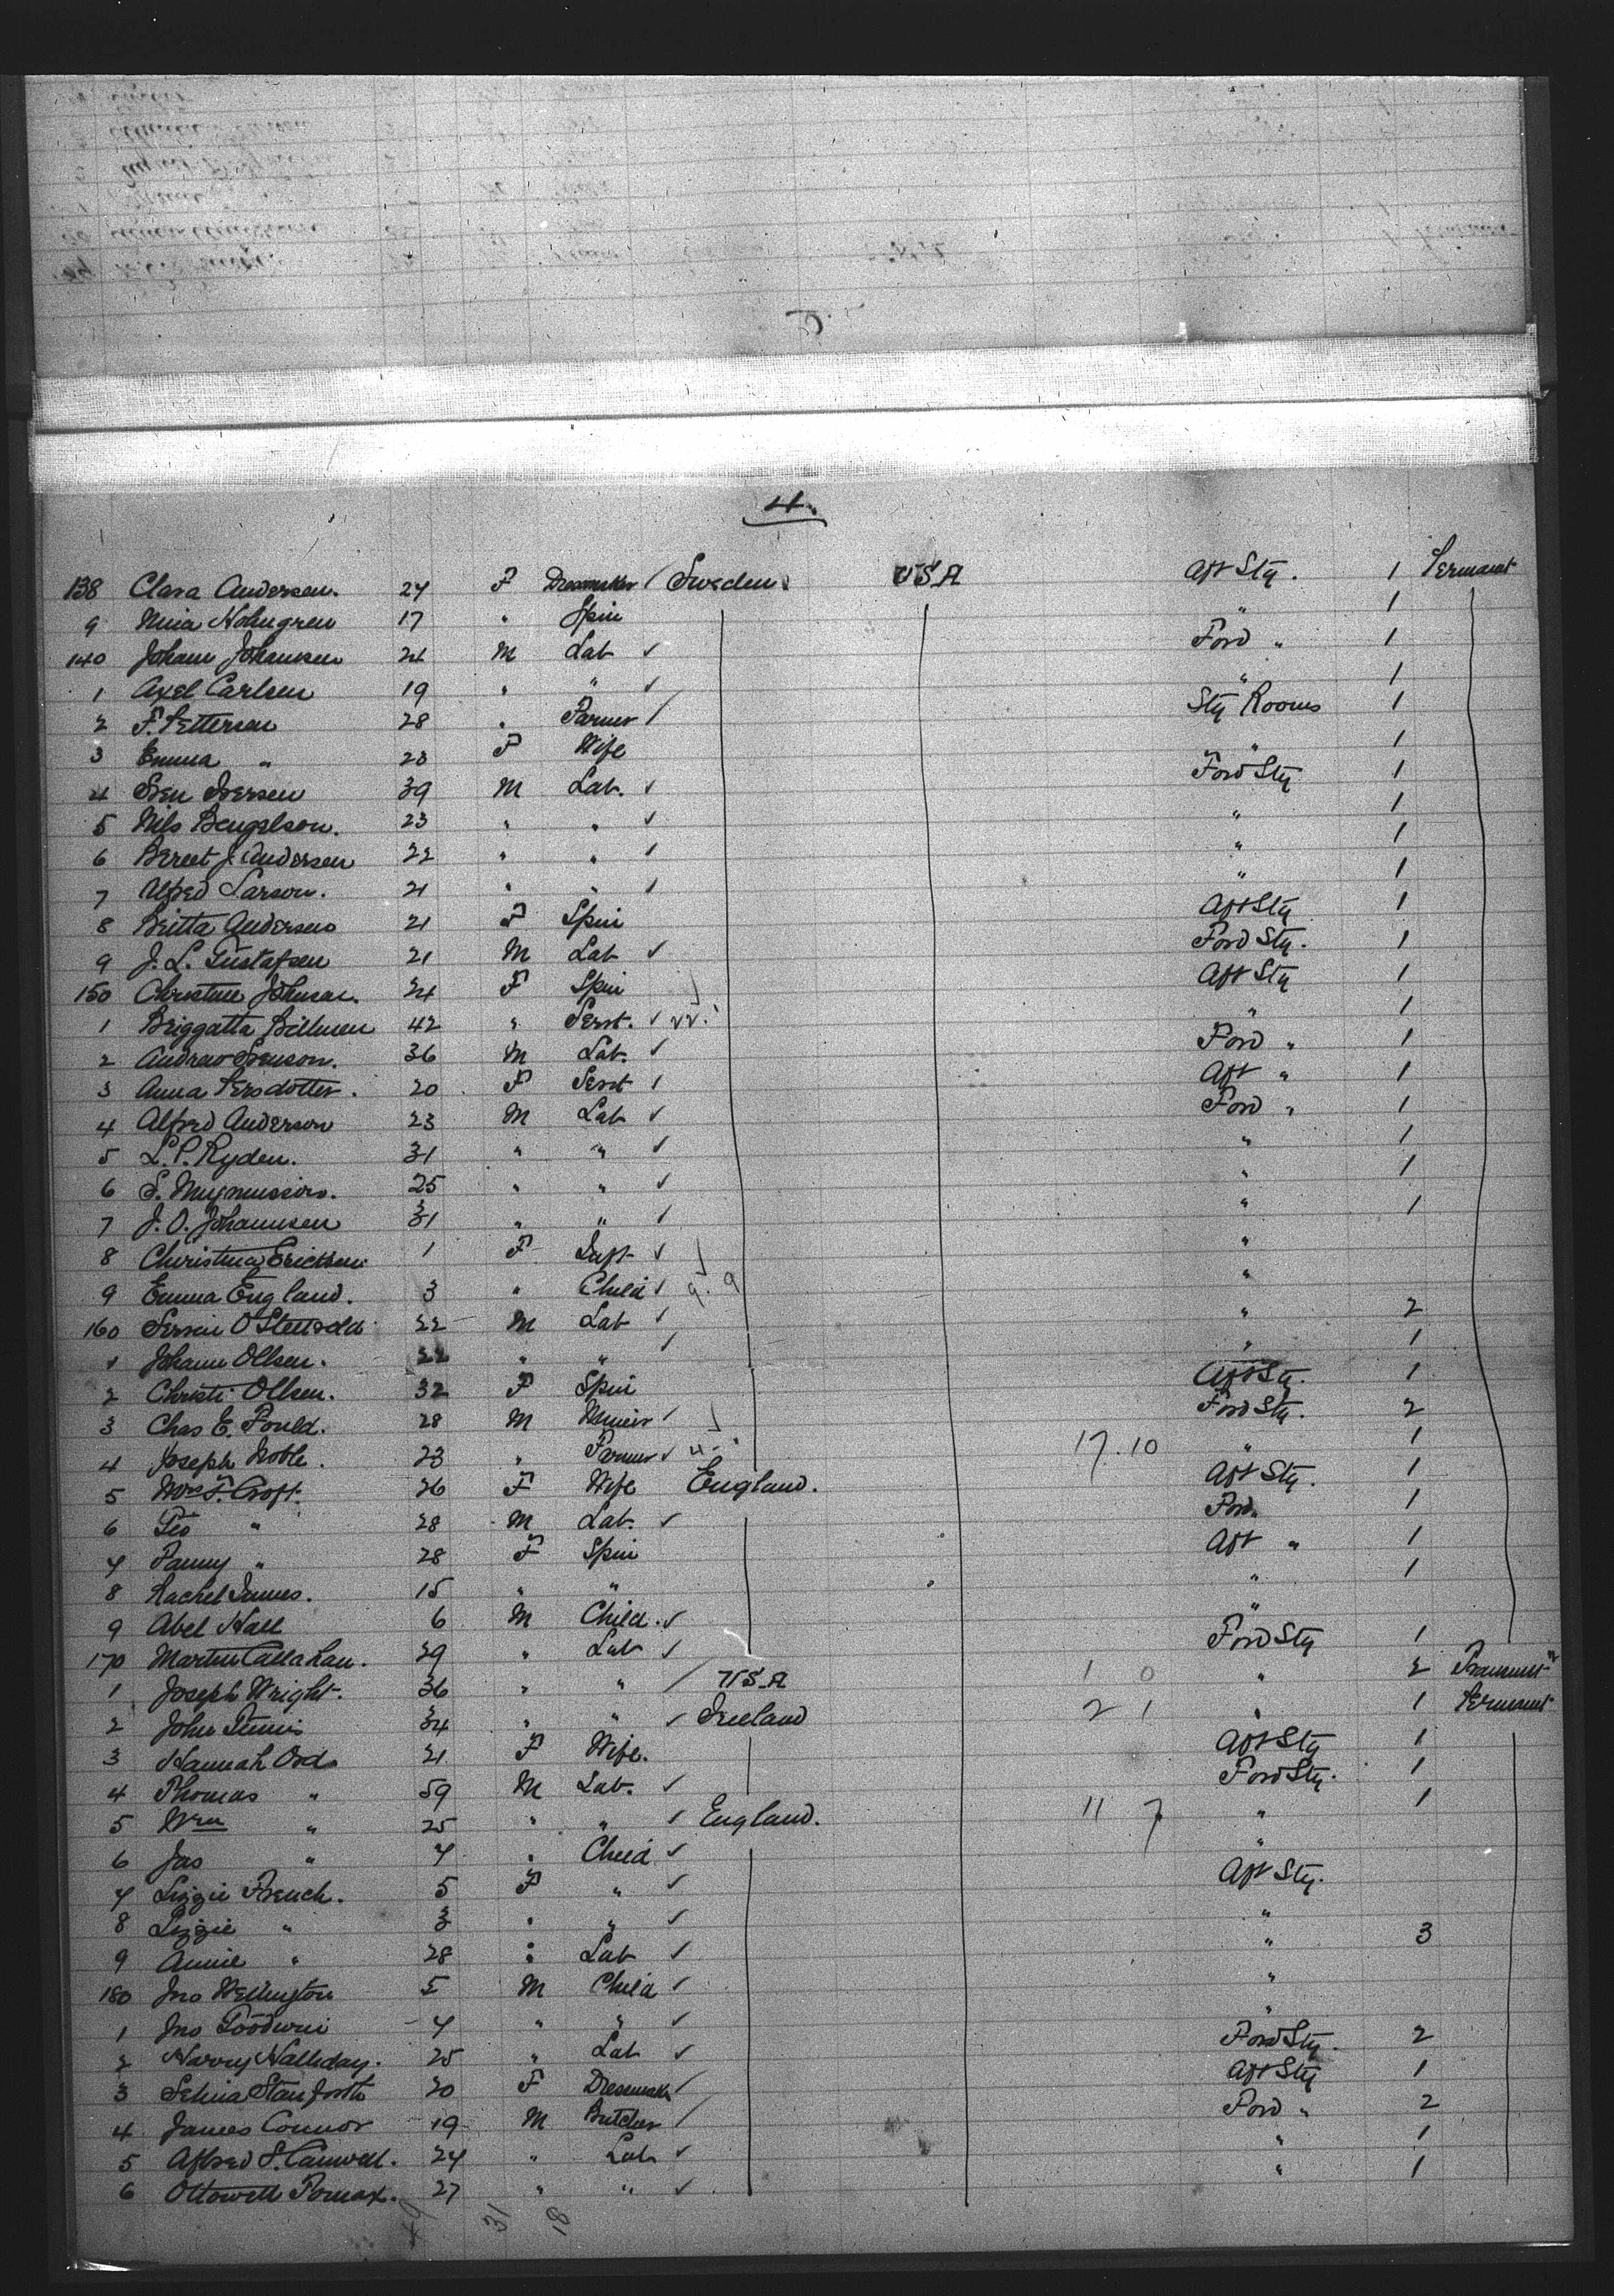 4.
138 Clara Andersen. 24 F Dressmaker / Sweden USA Aft Sty. 1 Permant
9 Holmgren 17 " Spin " 1
140 Johan Johansen 24 M Lab ✓ Ford " 1
1 Axel Carlsen 19 " " ✓ " 1
2 F. Petterson 28 " Farmer / Sty Rooms 1
3 Emma " 23 F Wife " " 1
4 Sven Iversen 39 M Lab. ✓ Ford Sty 1
5 Nils Bengelson. 23 " " ✓ " 1
6 J. Andersen 22 " " / " 1
7 Alfred Larson. 21 " " / " 1
8 Britta Andersen 21 F Spin Aft Sty 1
9 J. L. Gustafsen 21 M Lab ✓ Ford Sty. 1
150 Christine Johnson. 24 F Spin Aft Sty 1
1 Briggatta 42 " Servt. ✓ " 1
2 Andrew Svenson. 36 M Lab. ✓ Ford " 1
3 Anna Persdotter. 20 F Servt / Aft " 1
4 Alfred Anderson 23 M Lab ✓ Ford " 1
5 L. P. Ryden. 31 " " ✓ " 1
6 S. 25 " " ✓ " 1
7 J. O. Johannsen 31 " " / " 1
8 Christina Ericksen 1 F Inft ✓ "
9 Emma England. 3 " Child / 9. 9 "
160 22 M Lab / " 2
1 Johann Ollsen. 22 " " / " 1
2 Christi Ollsen. 32 F Spin Aft Sty. 1
3 Chas E. 28 M Miner / Ford Sty. 2
4 Joseph Noble. 23 " Farmer ✓ 17.10 " 1
5 Mrs F. Croft. 26 F Wife England. Aft Sty. 1
6 Geo " 28 M Lab. ✓ Ford. 1
7 Fanny " 28 F Spin Aft " 1
8 Rachel James. 15 " " " 1
9 Abel Hall 6 M Child. ✓ "
170 Martin Callahan. 29 " Lab ✓ Ford Sty 1
1 Joseph Wright. 36 " " / USA 1 0 " 2
2 John 34 " " ✓ Ireland 2 1 " 1 Permant
3 Hannah Ord 21 F Wife. Aft Sty 1
4 Thomas " 59 M Lab. ✓ Ford Sty. 1
5 Wm " 25 " " / England. 11 7 " 1
6 Jas " 4 " Child ✓ "
7 Lizzie French. 5 F " ✓ Aft Sty.
8 Lizzie " 3 " " ✓ "
9 Annie " 28 " Lab ✓ " 3
180 Jno Wellington 5 M Child / "
1 Jno Goodwin 4 " " ✓ "
2 Harry Halliday. 25 " Lab ✓ Ford Sty. 2
3 Selina Stanforth 20 F Dressmak / Aft Sty 1
4 James Connor 19 M Butcher / Ford " 2
5 Alfred S. 24 " Lab ✓ " 1
6 27 " " ✓ " 1
49 31 18